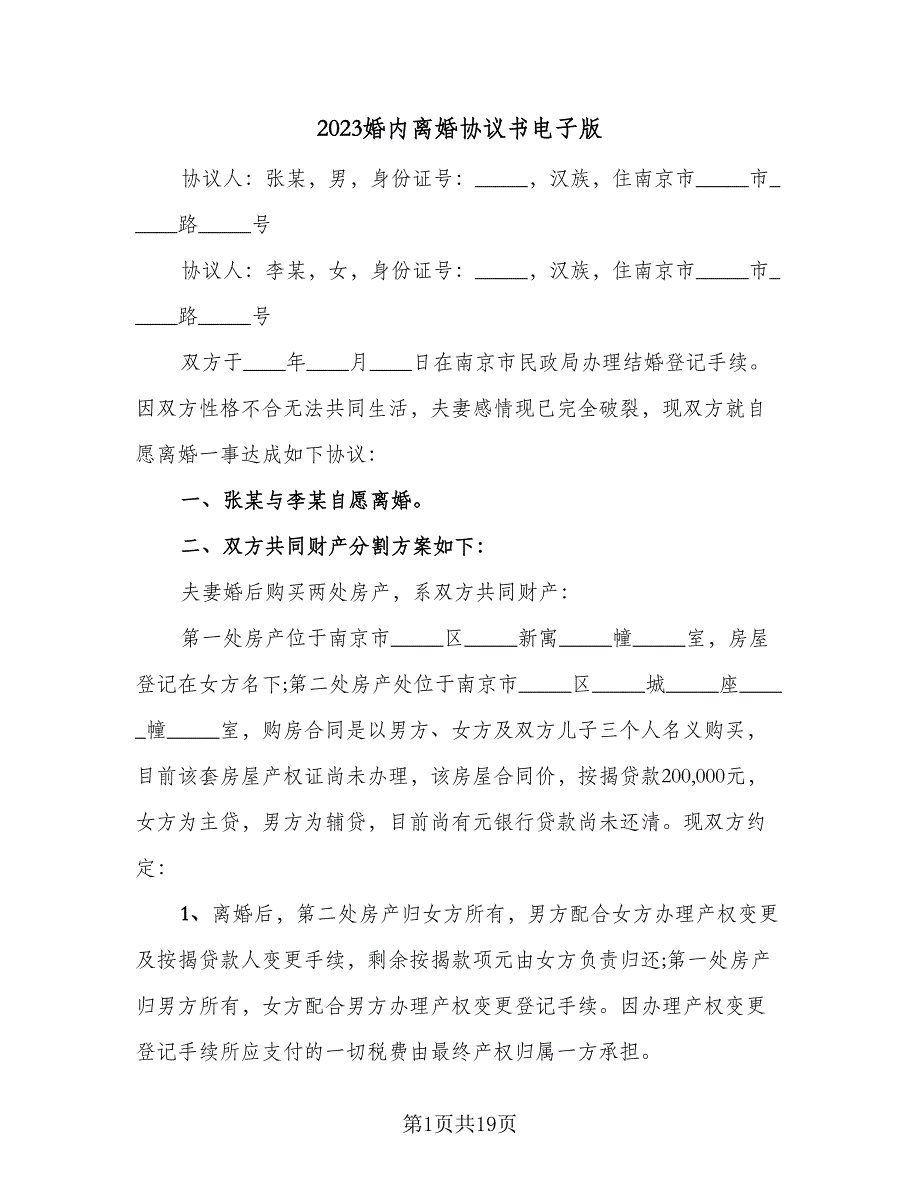 2023婚内离婚协议书电子版
协议人：张某，男，身份证号：_____，汉族，住南京市_____市_
____路_____号
协议人：李某，女，身份证号：_____，汉族，住南京市_____市_
____路_____号
双方于____年____月____日在南京市民政局办理结婚登记手续。
因双方性格不合无法共同生活，夫妻感情现已完全破裂，现双方就自
愿离婚一事达成如下协议：
一、张某与李某自愿离婚。
二、双方共同财产分割方案如下：
夫妻婚后购买两处房产，系双方共同财产：
第一处房产位于南京市_____区_____新寓_____幢_____室，房屋
登记在女方名下;第二处房产处位于南京市_____区_____城_____座____
_幢_____室，购房合同是以男方、女方及双方儿子三个人名义购买，
目前该套房屋产权证尚未办理，该房屋合同价，按揭贷款200,000元，
女方为主贷，男方为辅贷，目前尚有元银行贷款尚未还清。现双方约
定：
1、离婚后，第二处房产归女方所有，男方配合女方办理产权变更
及按揭贷款人变更手续，剩余按揭款项元由女方负责归还;第一处房产
归男方所有，女方配合男方办理产权变更登记手续。因办理产权变更
登记手续所应支付的一切税费由最终产权归属一方承担。
第1页共19页